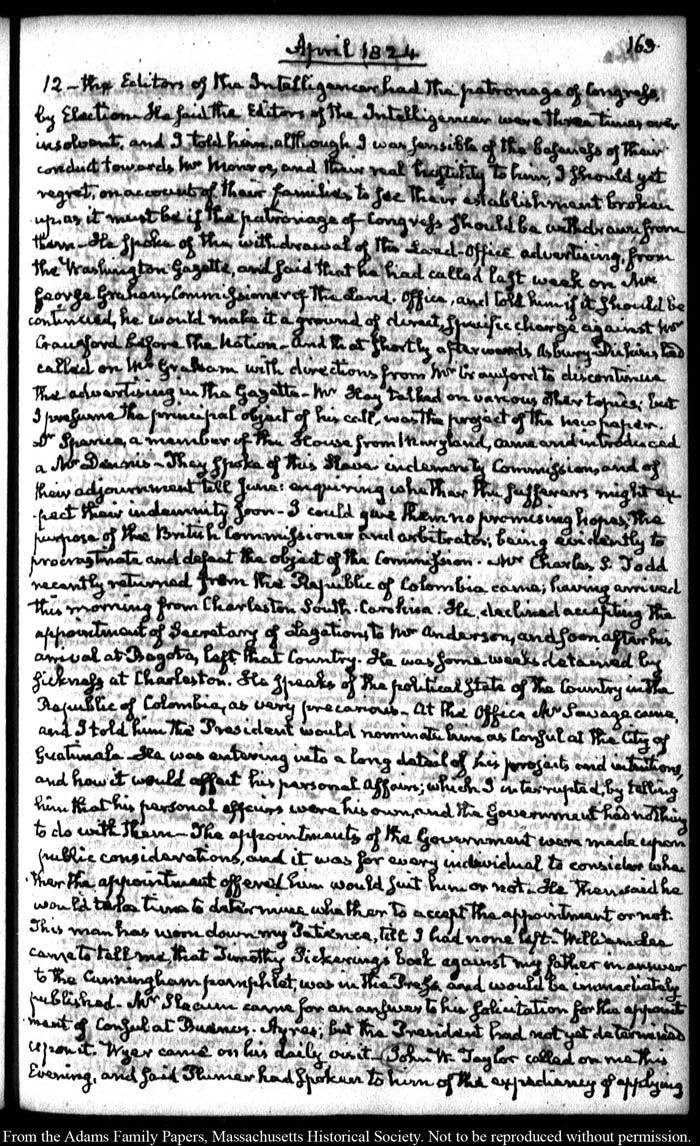 April 1824
169.
12 – the Editors of the Intelligencer had the patronage of Congress,
by Election. He said the Editors of the Intelligencer were three times over
insolvent, and I told him, although I was sensible of the baseness of their
conduct towards Mr Monroe, and their real hostility to him, I should yet
regret, on account of their families to see their establishment broken
up as it must be if the patronage of Congress should be withdrawn from
them – He spoke of the withdrawal of the Land-Office advertising, from
the Washington Gazette, and said that he had called last week on Mr
George Graham, Commissioner of the Land. Office, and told him if it should be
continued, he would make it a ground of direct, specific charge against Mr
Crawford before the Nation – And that shortly afterwards Asbury Dickins had
called on Mr Graham with directions from Mr Crawford to discontinue
the advertising in the Gazette – Mr Hay talked on various other topics; but
I presume the principal object of his call, was the project of the newspaper.
Dr Spence, a member of the House from Maryland, came and introduced
a Mr Dennis – They spoke of this Slave indemnity Commission, and of
their adjournment till June: enquiring whether the sufferers might ex-
-pect their indemnity soon – I could give them no promising hopes; the
purpose of the British Commissioner and arbitrator, being evidently to
procrastinate and defeat the object of the Commission. Mr Charles S. Todd
recently returned from the Republic of Colombia came; having arrived
this morning from Charleston South-Carolina. He declined accepting the
appointment of Secretary of Legation, to Mr Anderson, and soon after his
arrival at Bogota, left that Country. He was some weeks detained by
sickness at Charleston. He speaks of the political State of the Country in the
Republic of Colombia, as very precarious. At the Office Mr Savage came,
and I told him the President would nominate him as Consul at the City of
Guatimala – He was entering into a long detail of his projects and intentions,
and how it would affect his personal affairs; which I interrupted, by telling
him that his personal affairs were his own, and the Government had nothing
to do with them – The appointments of the Government were made upon
public considerations, and it was for every individual to consider whe-
-ther the appointment offered him would suit him or not. He then said he
would take time to determine whether to accept the appointment or not.
This man has worn down my Patience, till I had none left – William Lee
came to tell me, that Timothy Pickering's book against my father in answer
to the Cunningham pamphlet, was in the Press and would be immediately
published – Mr Slacum came for an answer to his solicitation for the appoint-
-ment of Consul at Buenos-Ayres; but the President had not yet determined
upon it. Wyer came on his daily visit. John W. Taylor called on me this
Evening, and said Plumer had spoken to him of the expediency of applying
From the Adams Family Papers, Massachusetts Historical Society. Not to be reproduced without permission.